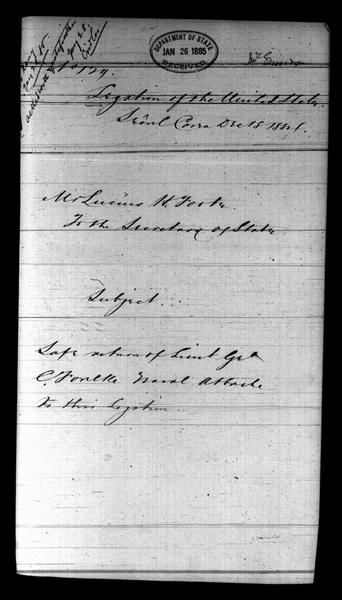 DEPARTMENT OF STATE
JAN 26 1885
RECEIVED
No 129.
Legation of the United States.
Seoul Corea Dec 15 1884.
Mr Lucius H. Foote
To the Secretary of State
Subject.
Safe return of Lieut Geo
C. Foulke Naval Attache
to this Legation.